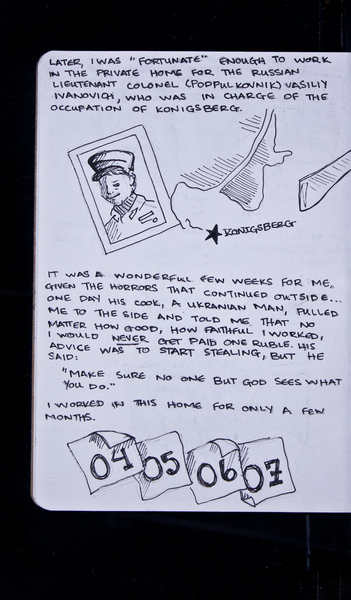 LATER, I WAS "FORTUNATE" ENOUGH TO WORK
IN THE PRIVATE HOME FOR THE RUSSIAN
LIEUTENANT COLONEL (PODPULKOVNIK) VASILIY
IVANOVICH, WHO WAS IN CHARGE OF THE
OCCUPATION OF KONIGSBERG.
KONIGSBERG
IT WAS A WONDERFUL FEW WEEKS FOR ME,
GIVEN THE HORRORS THAT CONTINUED OUTSIDE...
ONE DAY HIS COOK, A UKRANIAN MAN, PULLED
ME TO THE SIDE AND TOLD ME THAT NO
MATTER HOW GOOD, HOW FAITHFUL I WORKED,
I WOULD NEVER GET PAID ONE RUBLE. HIS
ADVICE WAS TO START STEALING, BUT HE
SAID:
"MAKE SURE NO ONE BUT GOD SEES WHAT
YOU DO."
I WORKED IN THIS HOME FOR ONLY A FEW
MONTHS.
04 05 06 07